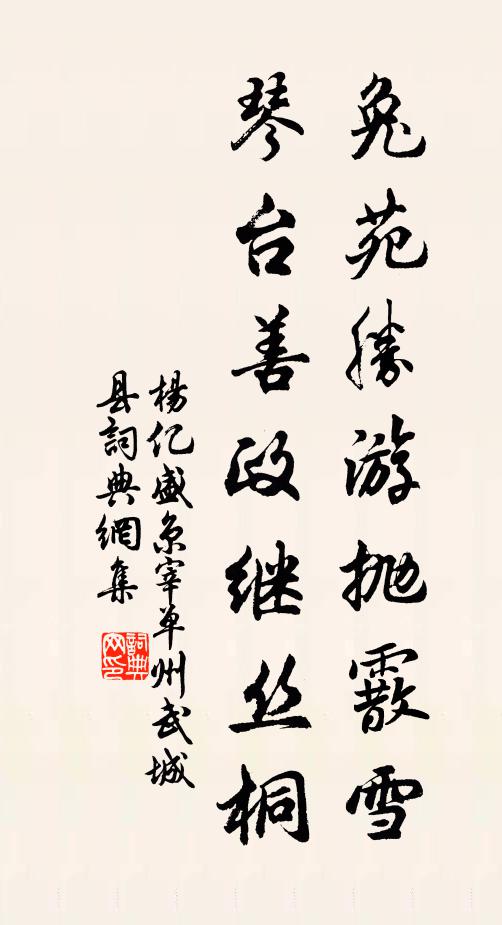 兔苑胜游抛霰雪
琴台善政继丝桐
楊亿盛京宰单州武城
县詞典網集
詞典网印